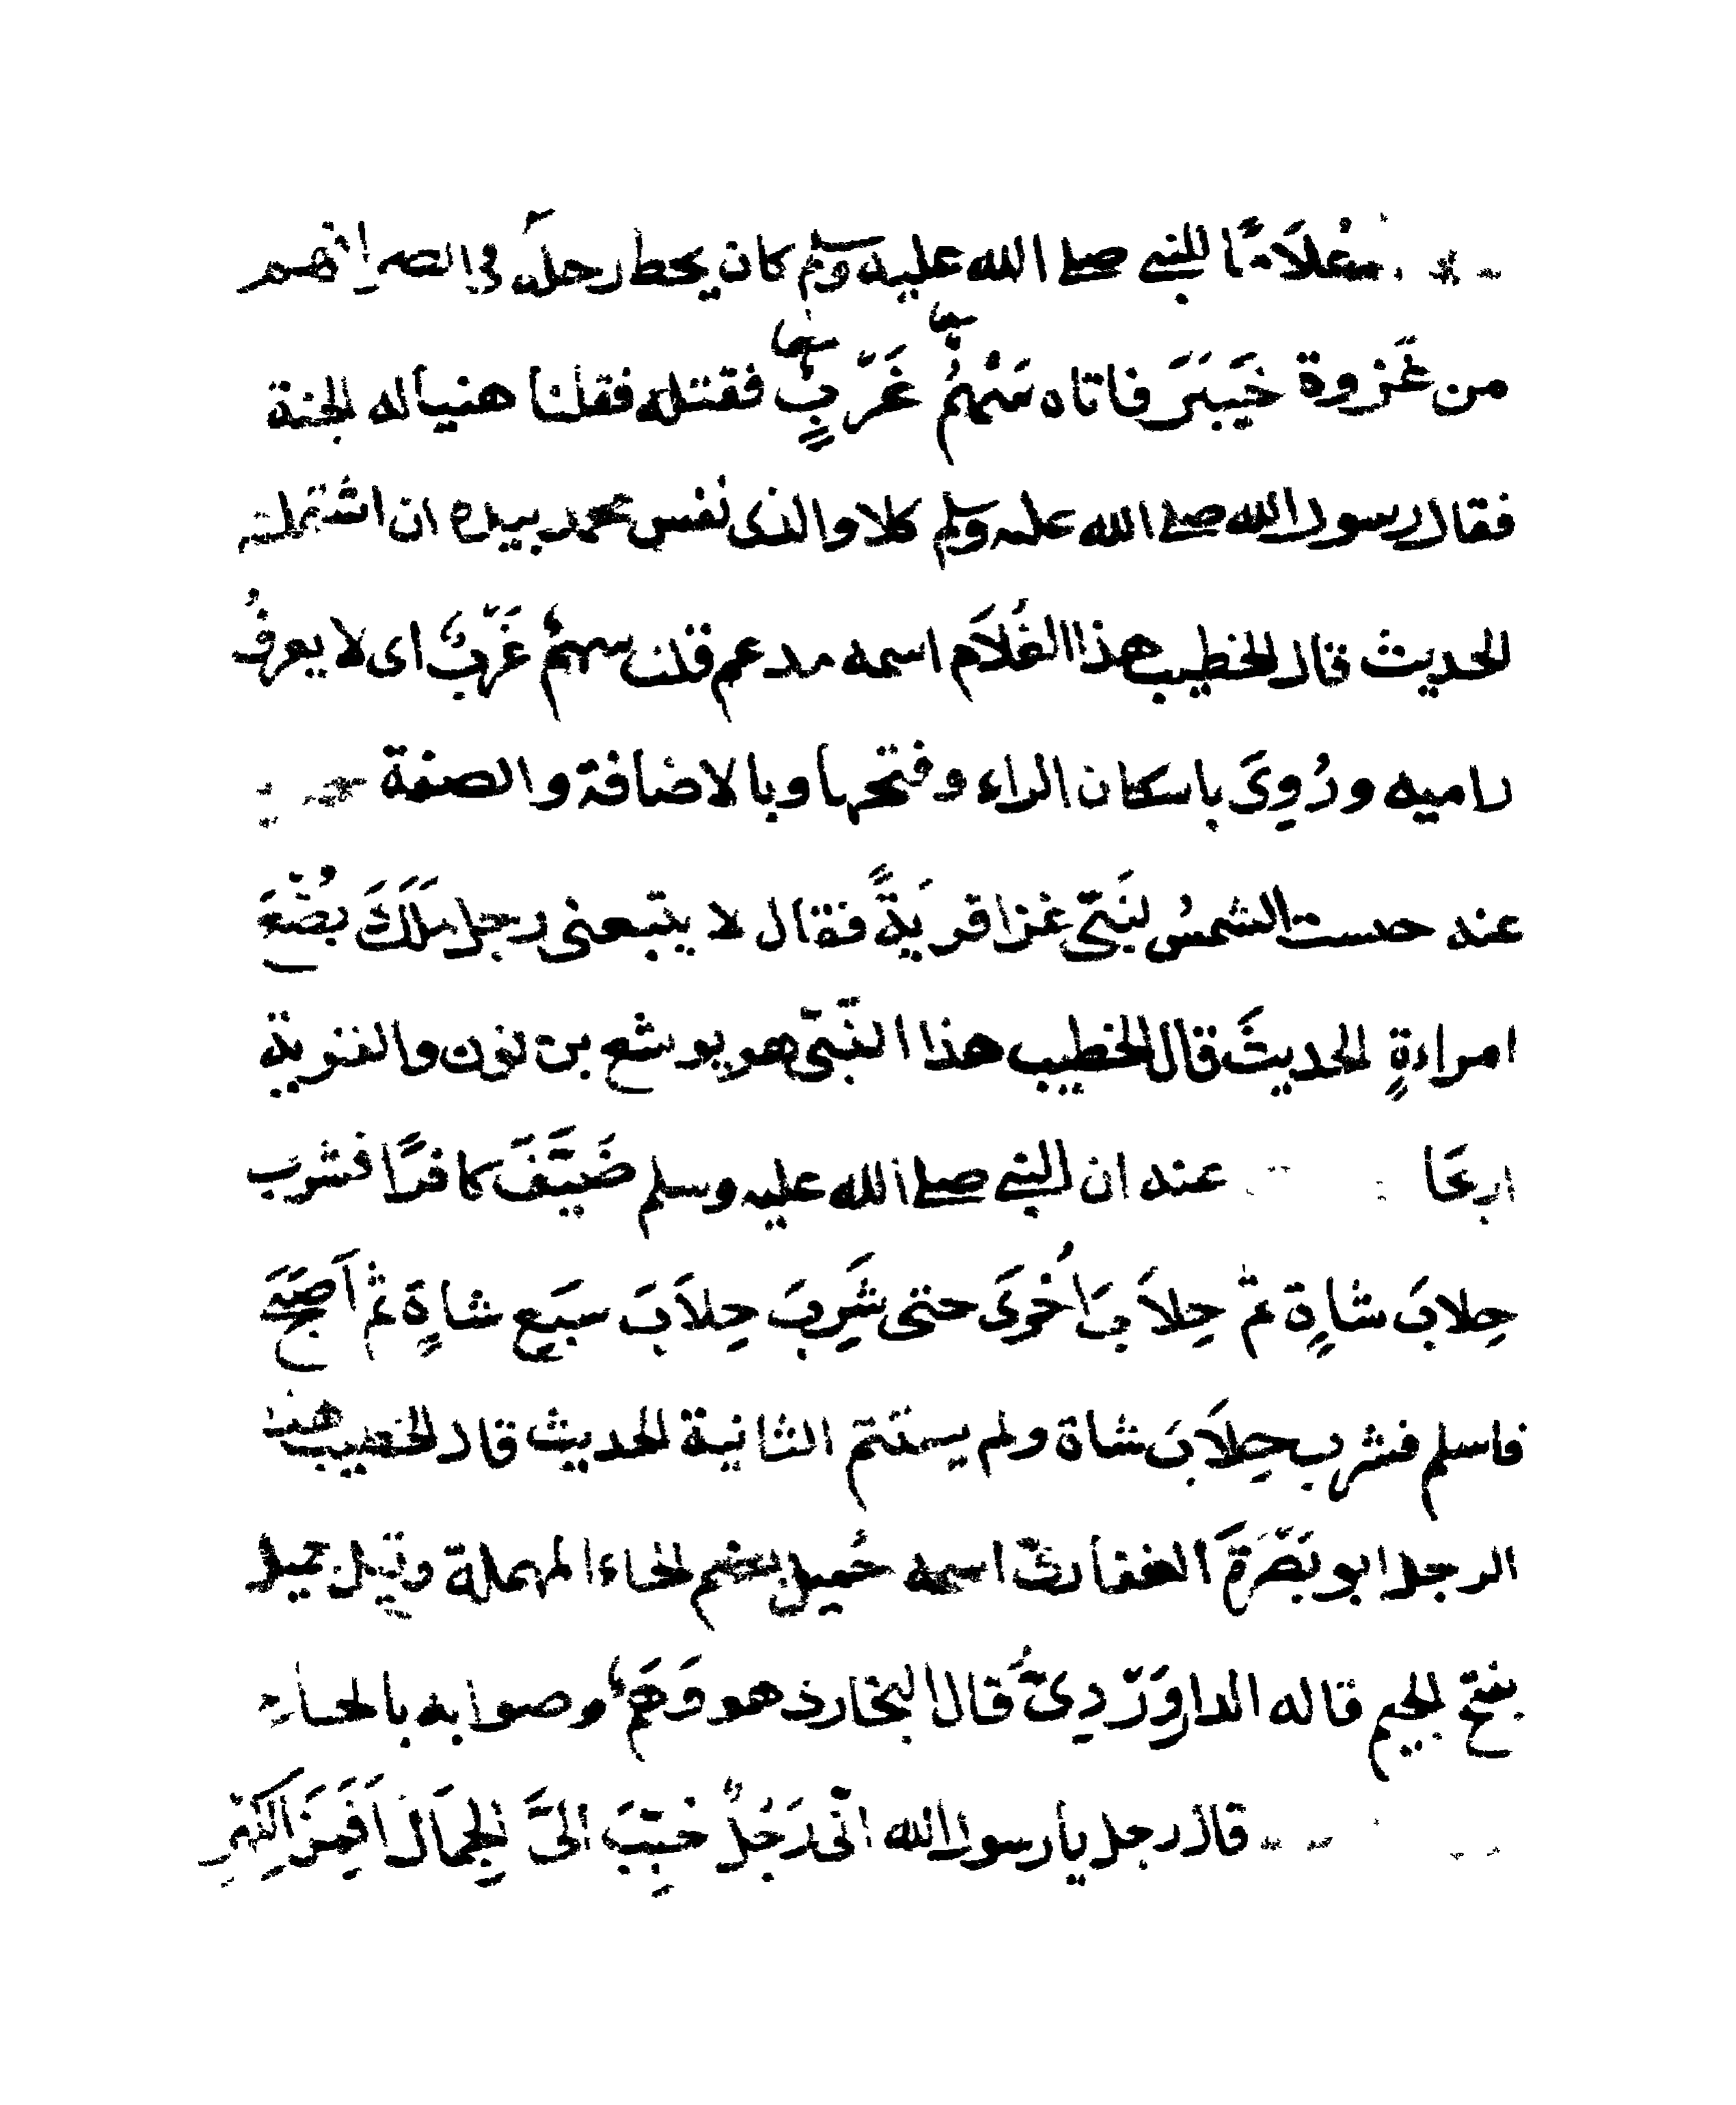 غُلَامًا للنبي صلى الله عليه وسلم كان يحط رحلَه في
من غَزوة خَيبَرَ فاتاه سَهْمٌ غَرْبٍ فقتله فقلنا هنيا له الجنة
فقال رسول الله صلى الله عليه وسلم كلا والذى نفس محمد بيده ان اشتملت
الحديث قال الخطيب هذا الغُلَام اسمه مدعم قلت سهمٌ غَرْبٌ اى لا يعرفُ
راميه ورُوِىَ باسكان الراء وفتحها وبالاضافة والصفة
عنه حبست الشمسُ لنَبِىّ غزا قريَةً فقال لا يتبعنى رجل مَلَكَ بُضْعَ
امراءةٍ الحديثَ قال الخطيب هذا النَّبىّ هو يوشع بن نون والقرية
اريحَا عنه ان النبي صلى الله عليه وسلم ضَيَّفَ كافرًا فشرب
حِلابَ شاةٍ ثم حِلاَبَ اُخرىَ حتى شَرِبَ حِلاَبَ سبَع شاةٍ ثم اَصَبَحَ
فاسلم فشرب حِلاَبَ شاة ولم يستتم الثانية الحديث قال الخطيب هذا
الرجل ابو بَصْرَةَ الغفارى اسمه حُميل بضم الحاء المهملة وقيل جميل
بفتح الجيم قاله الدراوَرْدِىُّ قال البخارى هو وَهَمٌ وصوابه بالحاء
قال رجل يا رسول الله انّى رَجُلٌ حُبِّبَ الىَّ الجمَالُ اَفَمِنَ الكِبْرِ